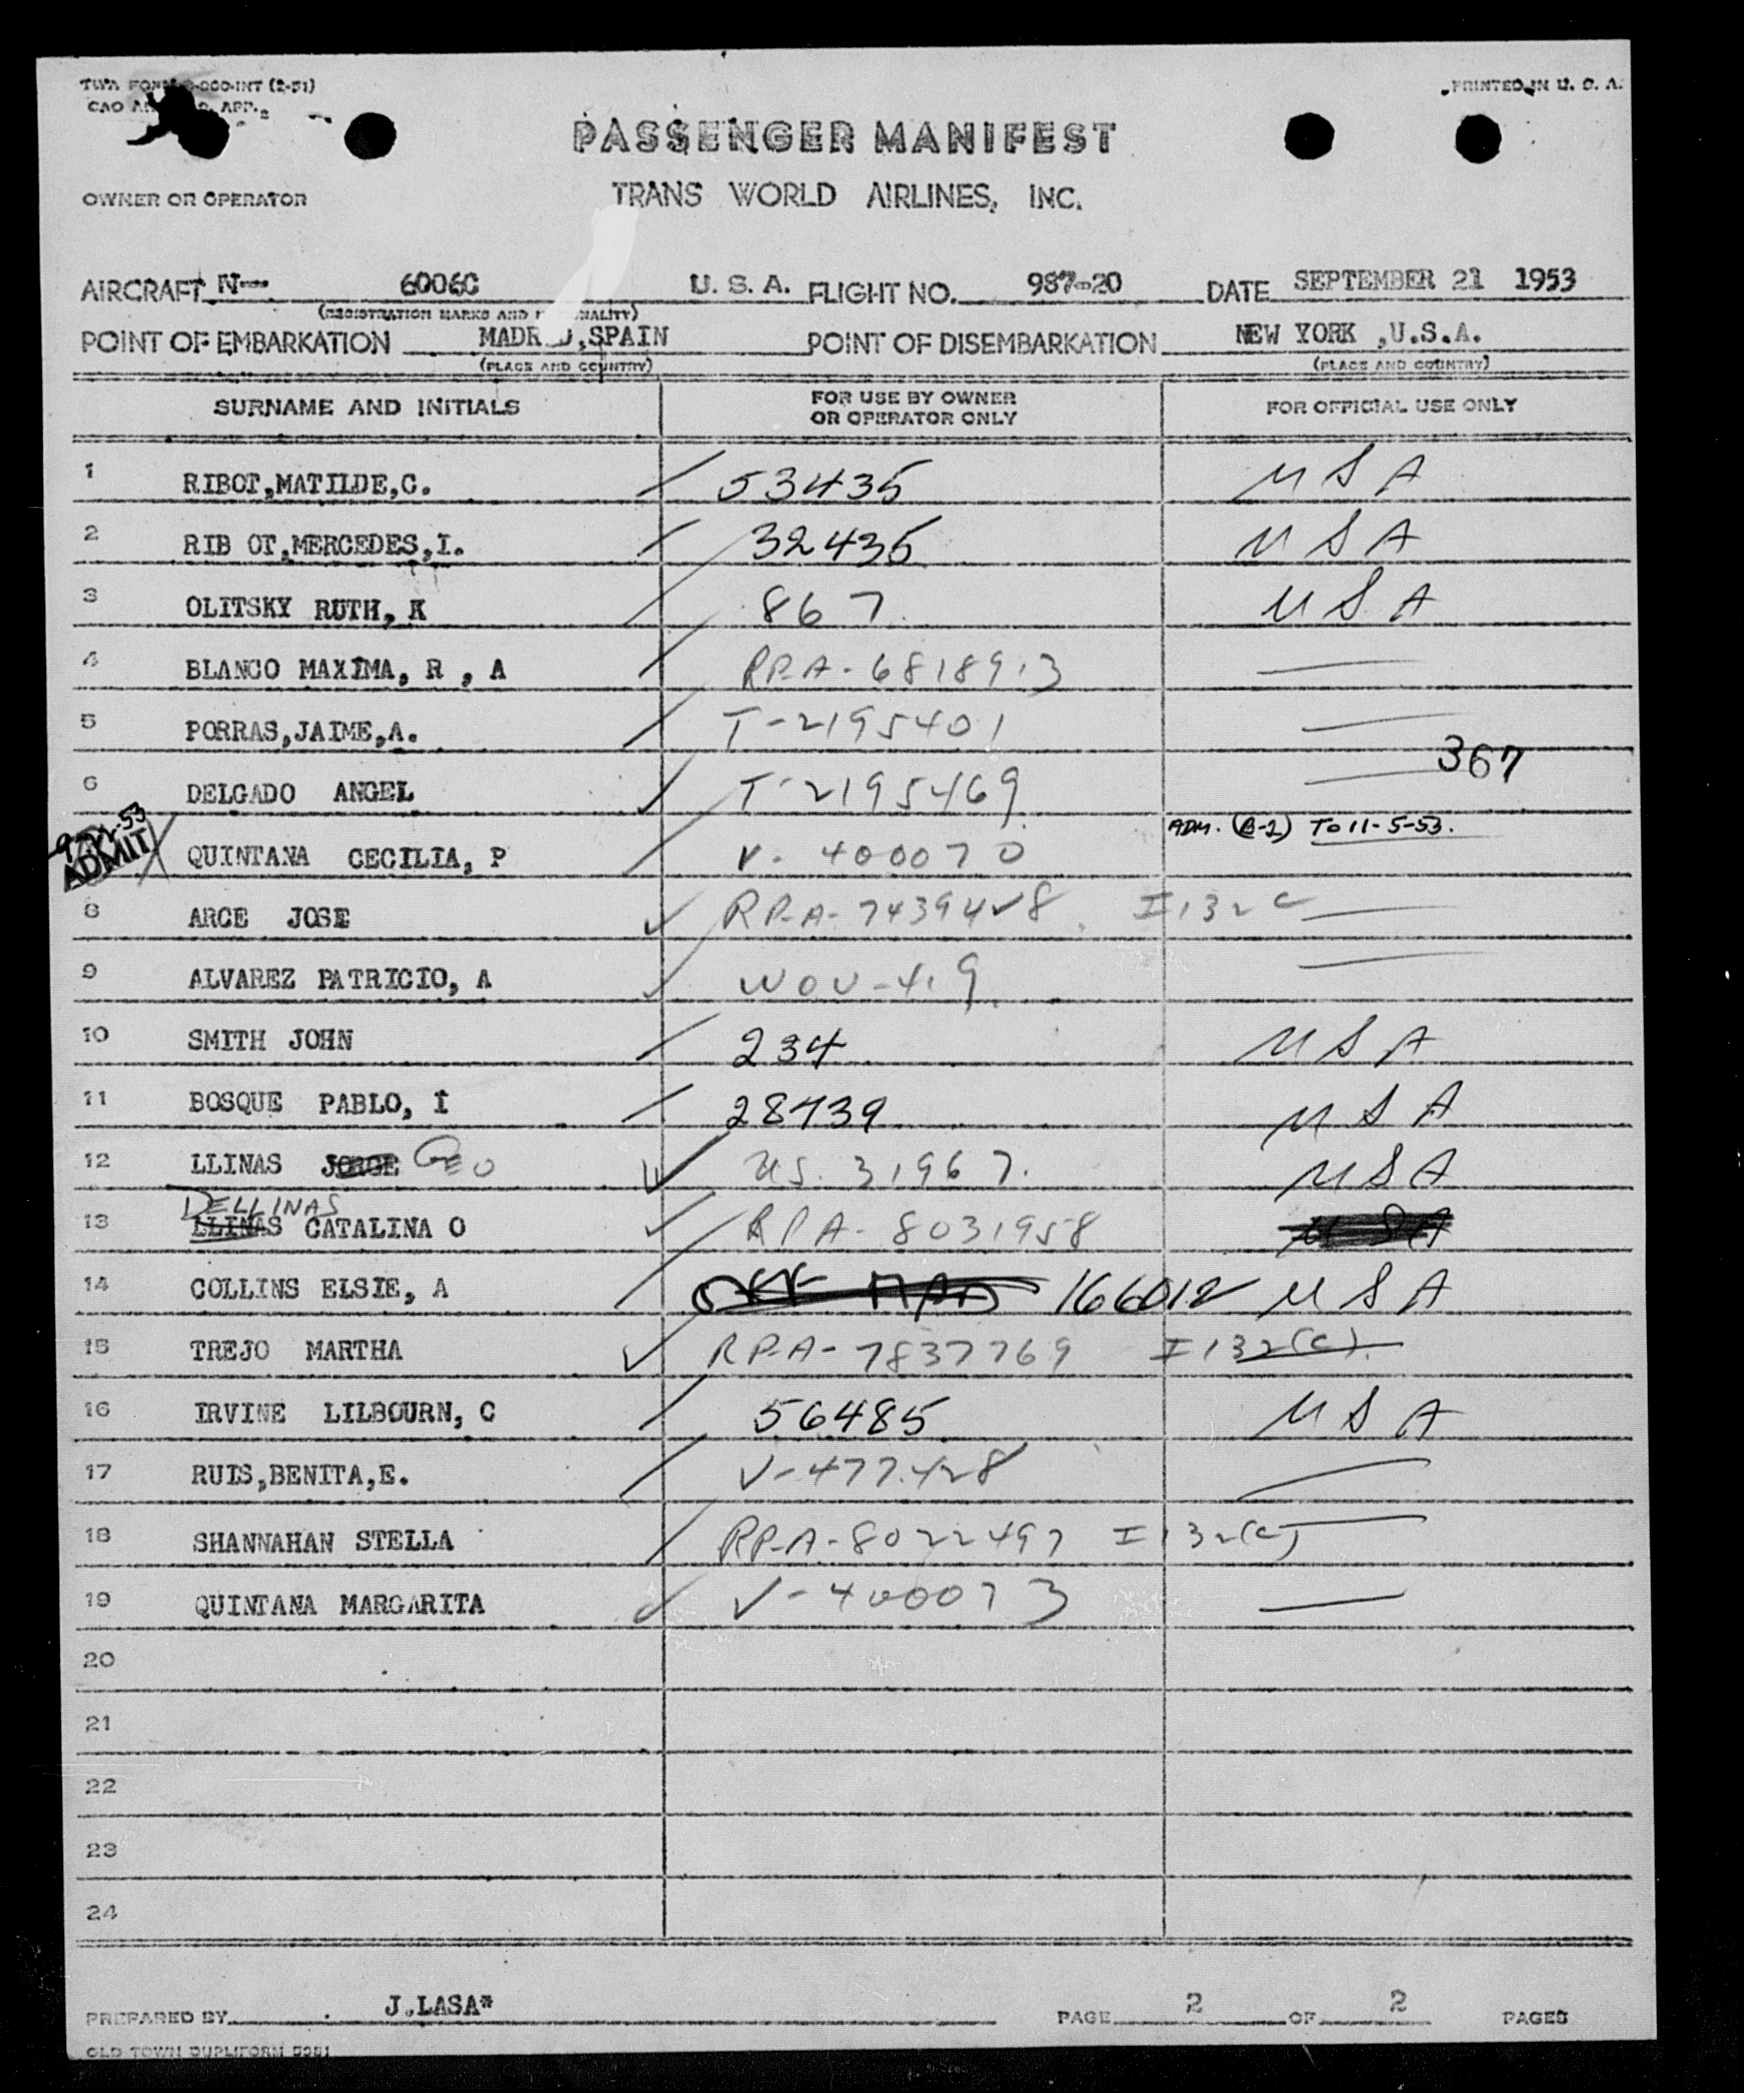 PRINTED IN U. S. A.
PASSENGER MANIFEST
OWNER OR OPERATOR TRANS WORLD AIRLINES, INC.
AIRCRAFT N-- 6006C U. S. A. FLIGHT NO. 987-20 DATE SEPTEMBER 21 1953
(REGISTRATION MARKS AND
POINT OF EMBARKATION ,SPAIN POINT OF DISEMBARKATION NEW YORK ,U.S.A.
(PLACE AND COUNTRY) (PLACE AND COUNTRY)
SURNAME AND INITIALS FOR USE BY OWNER OR OPERATOR ONLY FOR OFFICIAL USE ONLY
1 RIBOT,MATILDE,C. 53435 USA
2 RIB OT,MERCEDES,I. 32435 USA
3 OLITSKY RUTH, K 867 USA
4 BLANCO MAXIMA, R , A RPA-6818913
5 PORRAS,JAIME,A. T-2195401
6 DELGADO ANGEL T-2195469 367
ADMIT QUINTANA CECILIA, P V-400070 ADM. (B-2) To 11-5-53.
8 ARCE JOSE RPA-7439428 I132C
9 ALVAREZ PATRICIO, A
10 SMITH JOHN 234 USA
11 BOSQUE PABLO, I 28739 USA
12 LLINAS JORGE GEO US. 31967. USA
DELLINAS
13 LLINAS CATALINA O RPA-8031958 USA
14 COLLINS ELSIE, A 166012 USA
15 TREJO MARTHA RPA-7837769 I132(C).
16 IRVINE LILBOURN, C 56485 USA
17 RUIS,BENITA,E. V-477428
18 SHANNAHAN STELLA RPA-8022497 I132(C)
19 QUINTANA MARGARITA V-400073
20
21
22
23
24
PREPARED BY J.LASA* PAGE 2 OF 2 PAGES
OLD TOWN DUPLIFORM